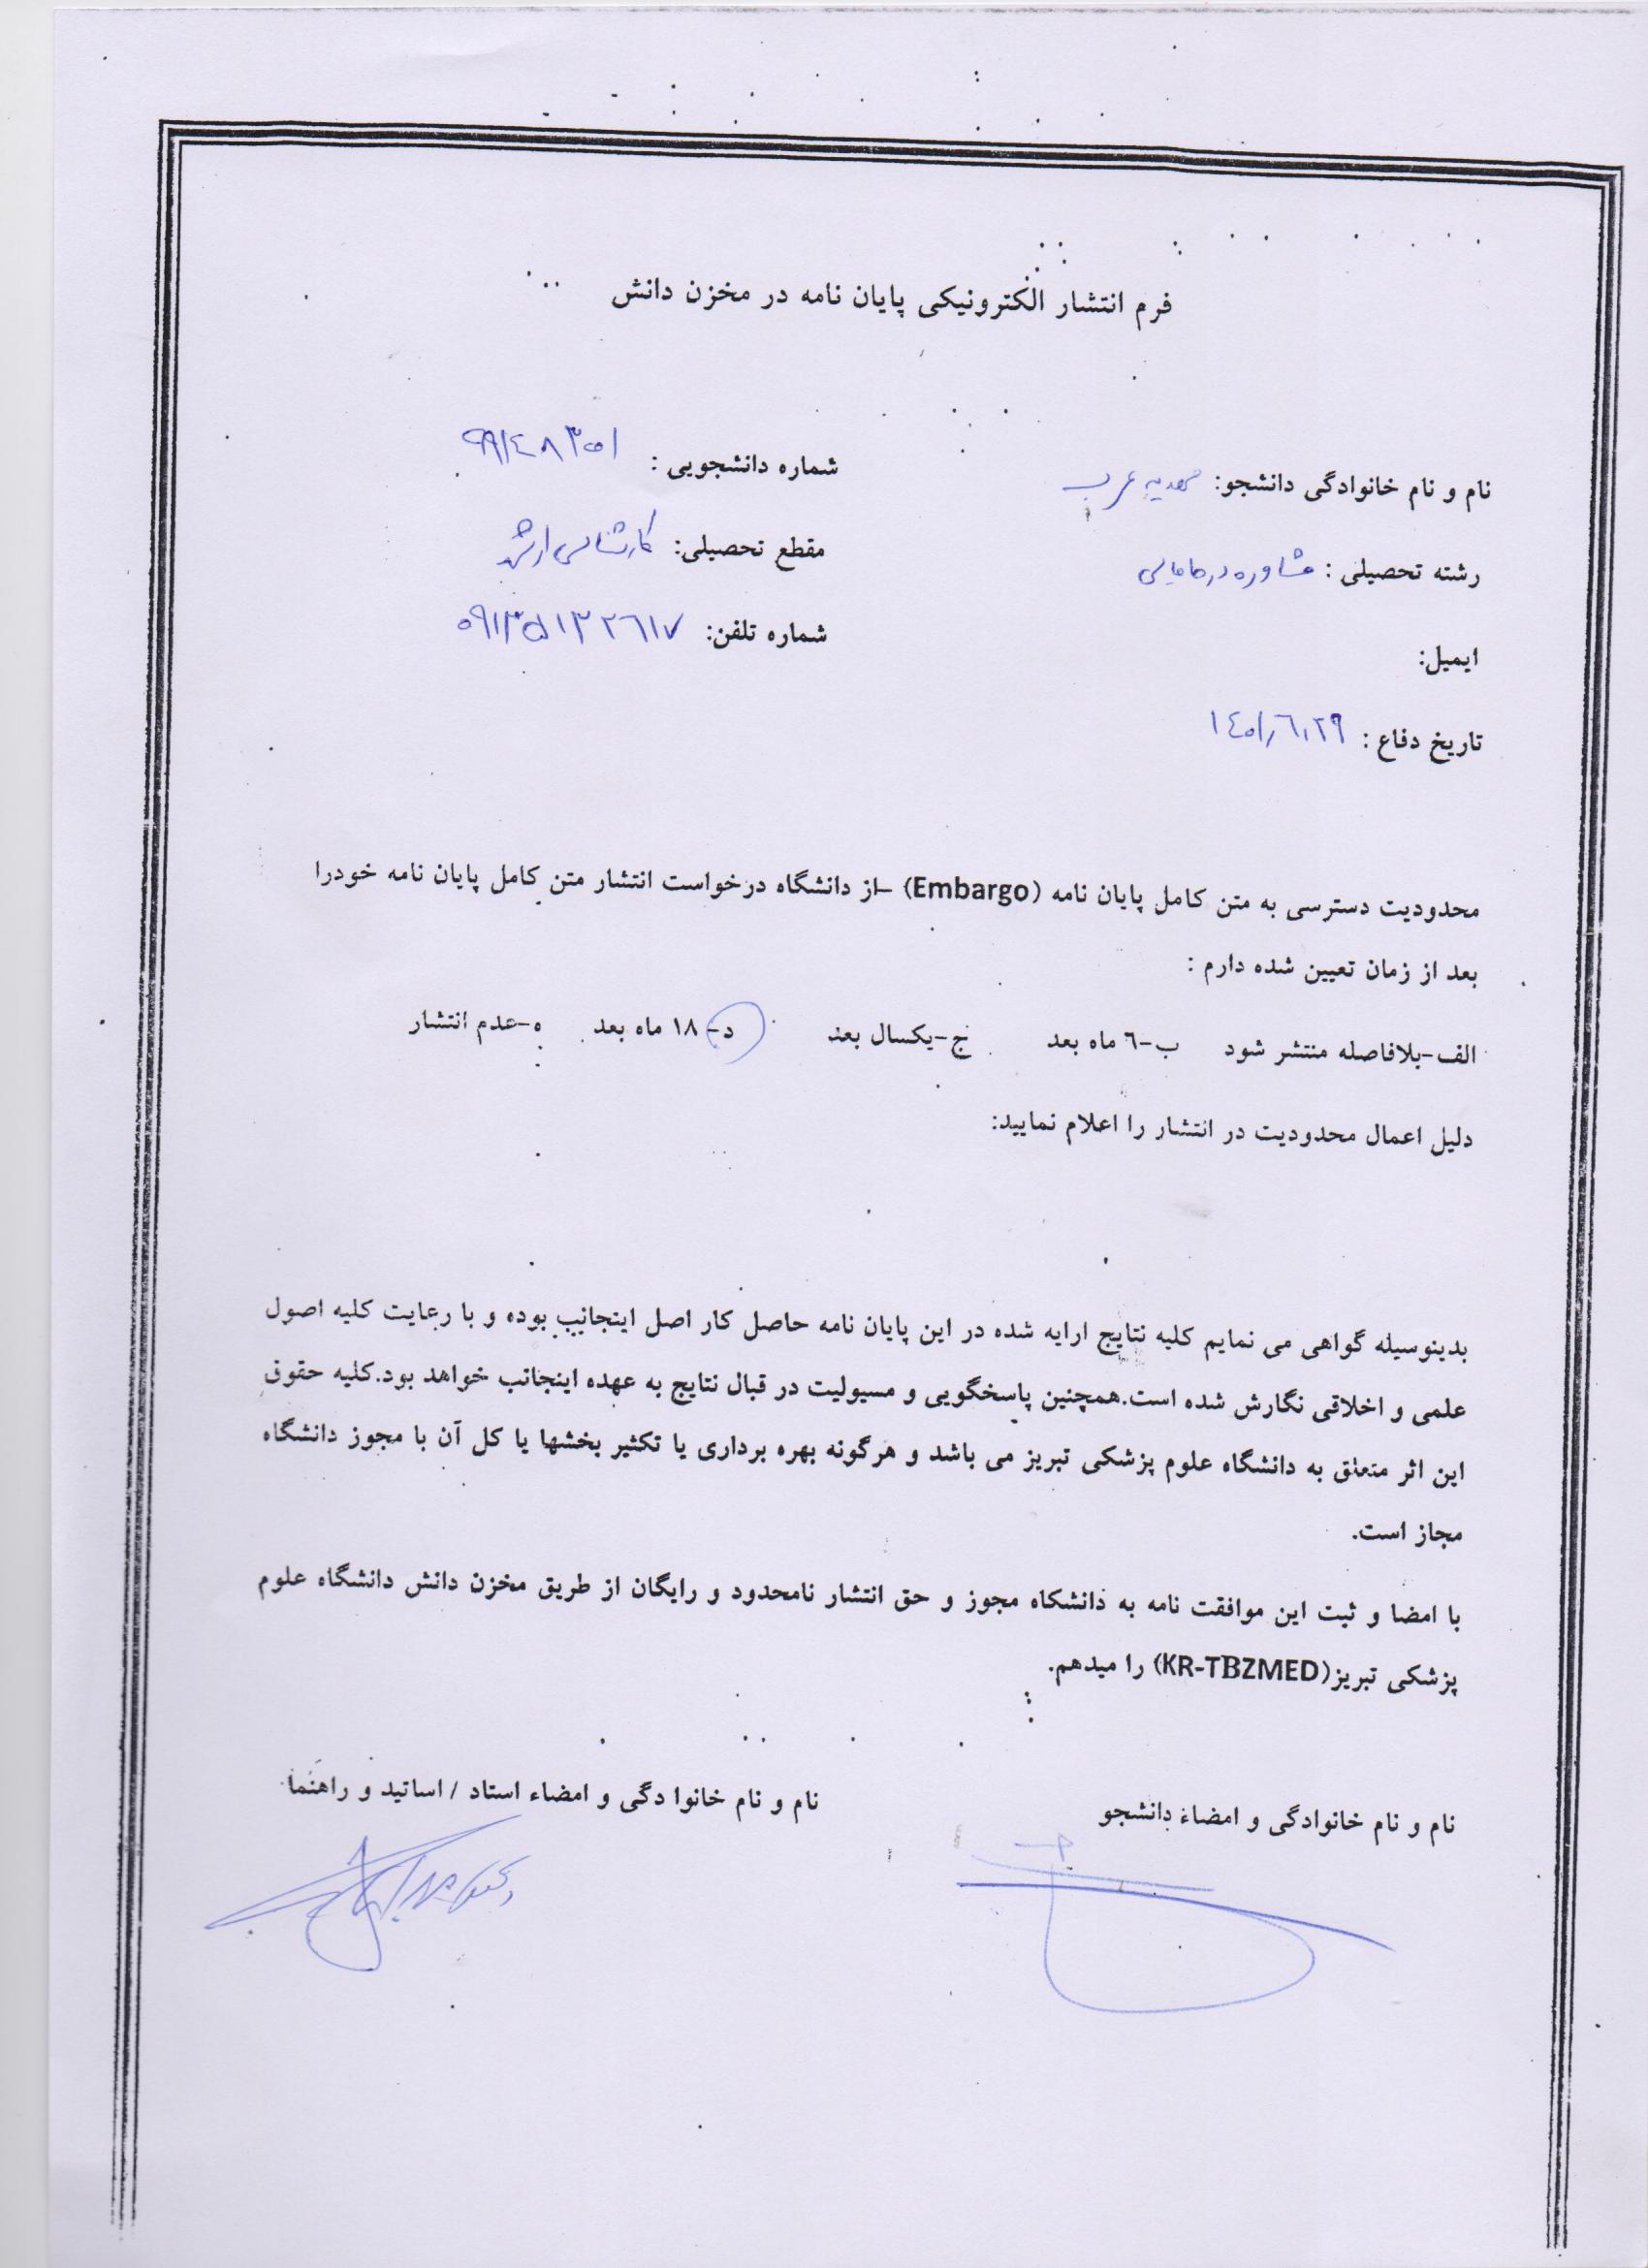 فرم انتشار الکترونیکی پایان نامه در مخزن دانش
نام و نام خانوادگی دانشجو: مهدیه عرب
شماره دانشجویی :
رشته تحصیلی : مشاوره در مامایی
مقطع تحصیلی: کارشناسی ارشد
ایمیل:
شماره تلفن: ۰۹۱۳۵۱۳۲۶۱۷
تاریخ دفاع : ۱۴۰۱٫۶٫۲۹
محدودیت دسترسی به متن کامل پایان نامه (Embargo) –از دانشگاه درخواست انتشار متن کامل پایان نامه خودرا
بعد از زمان تعیین شده دارم :
الف-بلافاصله منتشر شود ب-٦ ماه بعد ج-یکسال بعد د- ۱۸ ماه بعد ه-عدم انتشار
دلیل اعمال محدودیت در انتشار را اعلام نمایید:
بدینوسیله گواهی می نمایم کلیه نتایج ارایه شده در این پایان نامه حاصل کار اصل اینجانب بوده و با رعایت کلیه اصول
علمی و اخلاقی نگارش شده است.همچنین پاسخگویی و مسیولیت در قبال نتایج به عهده اینجانب خواهد بود.کلیه حقوق
این اثر متعلق به دانشگاه علوم پزشکی تبریز می باشد و هرگونه بهره برداری یا تکثیر بخشها یا کل آن با مجوز دانشگاه
مجاز است.
با امضا و ثبت این موافقت نامه به دانشکاه مجوز و حق انتشار نامحدود و رایگان از طریق مخزن دانش دانشگاه علوم
پزشکی تبریز(KR-TBZMED) را میدهم.
نام و نام خانوادگی و امضاء دانشجو
نام و نام خانوا دگی و امضاء استاد / اساتید و راهنما